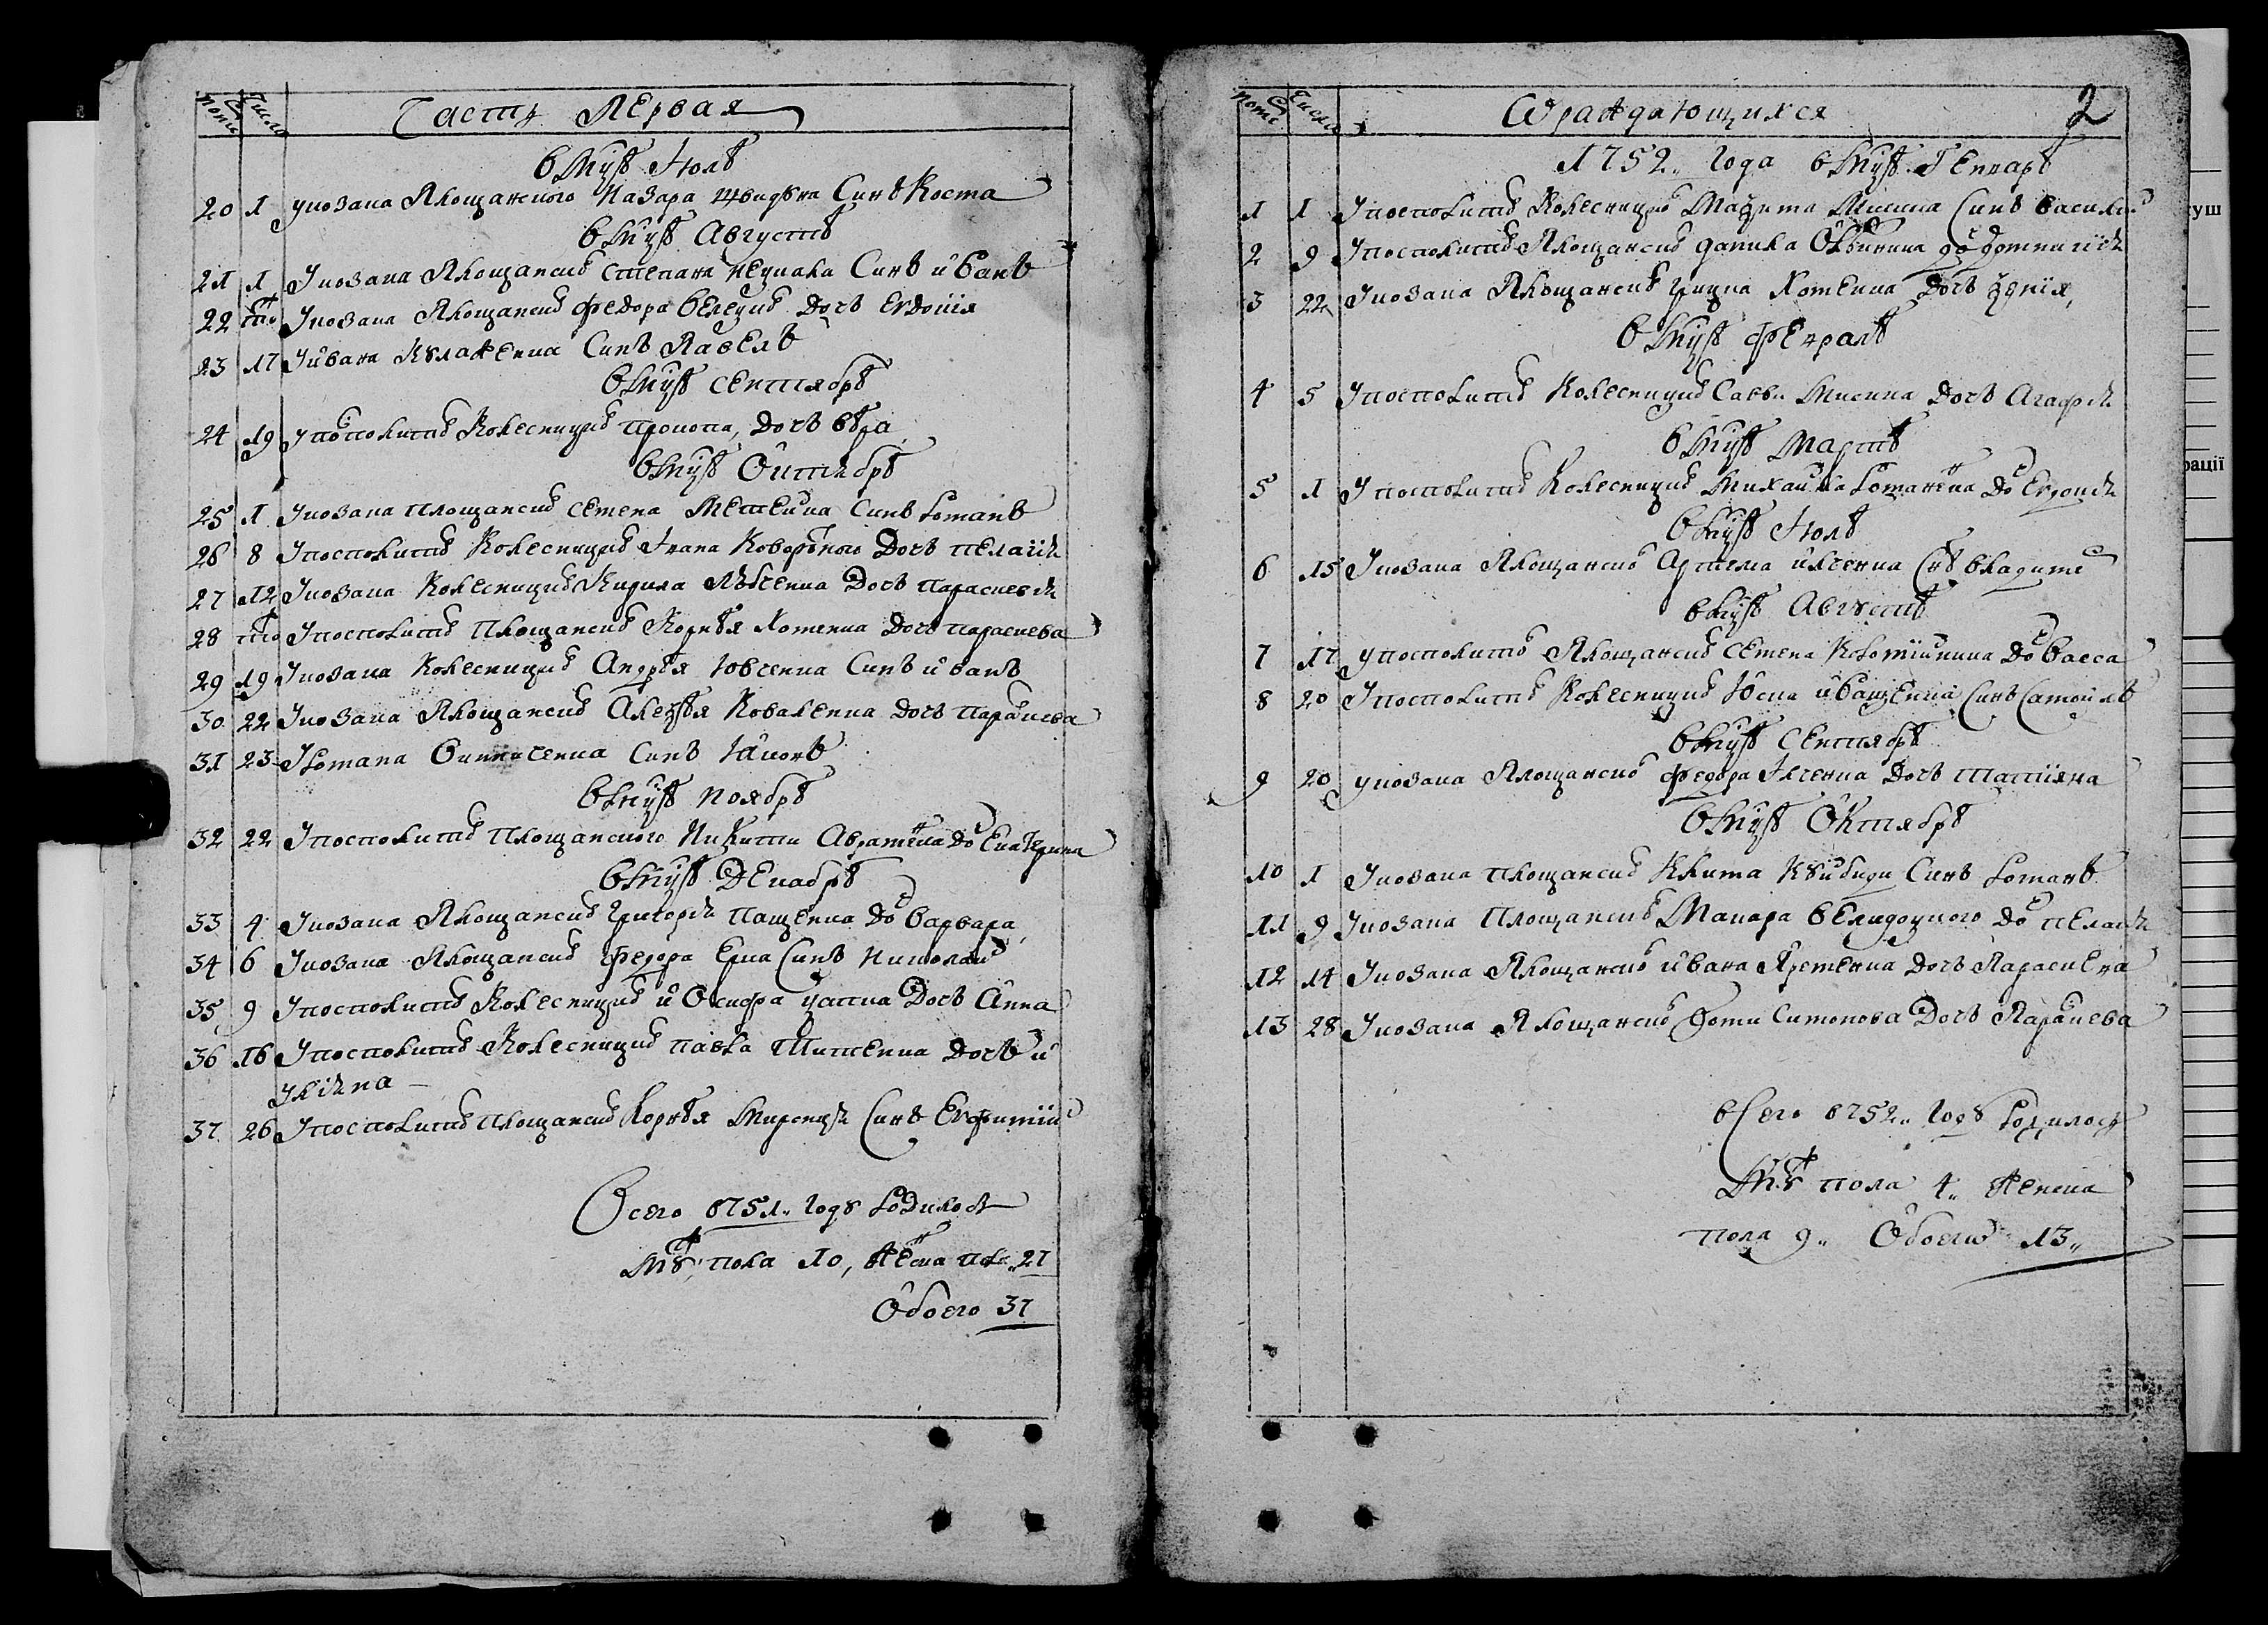 Часть Первая
в мцѣ Июлѣ
20 1 У козака площанского Назара Швидѣка Синъ Коста
в мцѣ Августѣ
21 1 У козака площанскаго Степана Нецмака Синъ иванъ
22 то У козака площанскаго Федора Велецкаго Дочъ Евдокия
23 17 У ивана Кулаженка Синъ Павелъ
в мцѣ Сентябрѣ
24 19 У посполитаго Колесницкаго Прокопа, Дочъ Вѣра
в мцѣ Октябрѣ
25 1 У козака площанскаго Семена Метенка Синъ Романъ
26 8 У посполитаго Колесницкаго Ивана Коворотного Дочъ Пелагія
27 12 У козака Колесницкаго Кирила Лѣвченка Дочъ Параскевія
28 то У посполитаго Площанскаго Корнѣя Хоменка Дочъ Параскева
29 19 У козака Колесницкаго Андрѣя Ювченка Синъ иванъ
30 22 У козака площанскаго Алексѣя Коваленка Дочъ Параскева
31 23 У Романа Винниченка Синъ Іаковъ
в мцѣ Ноябрѣ
32 22 У посполитаго Площанского Никити Авраменка Доч Екатерина
в мцѣ Декабрѣ
33 4 У козака площанскаго Григорія Пащенка Доч Варвара
34 6 У козака площанскаго Федора Ерка Синъ Николай
35 9 У посполитаго Колесницкаго иосифа Цапка Дочъ Анна
36 16 У посполитаго Колесницкаго Павла Тименка Дочъ и
улияна
37 26 У посполитаго Площанскаго Корнѣя Синъ Евфимій
Всего 1751 году Родилося
Муж, пола 10, женска пола 27
Обоего 37
О раждающихся 2
1752 года в мцѣ Генварѣ
1 1 У посполитаго Колесницкаго Максима Мисика Синъ Василий
2 9 У посполитаго площанскаго Данила доч Домникія
3 22 У козака площанскаго Грицка Хоменка Дочъ Ксенія
в мцѣ Февралѣ
4 5 У посполитаго Колесницкаго Савви Мисика Дочъ Агафія
в мцѣ Мартѣ
5 1 У посполитаго Колесницкаго Михайла Романенка Доч Евдокія
в мцѣ Июлѣ
6 15 У козака площанскаго Артема илченка Снъ Владимер
в мцѣ Августѣ
7 17 У посполитаго площанскаго Семена Коломійчика Доч Васса
8 20 У посполитаго Колесницкаго Юска иващенка Синъ Самоилъ
в мцѣ Сентябрѣ
9 20 У козака площанскаго Федора Илченка Дочъ Татіяна
в мцѣ Октябрѣ
10 1 У козака площанскаго Клима Синъ Романъ
11 9 У козака площанскаго Макара Доч Пелагія
12 14 У козака площанскаго ивана Яременка Дочъ Параскева
13 28 У козака площанскаго Фоми Симонова Дочъ Параскева
Всего 1752 году Родилося
Муж пола 4 женска
пола 9 Обоего 13